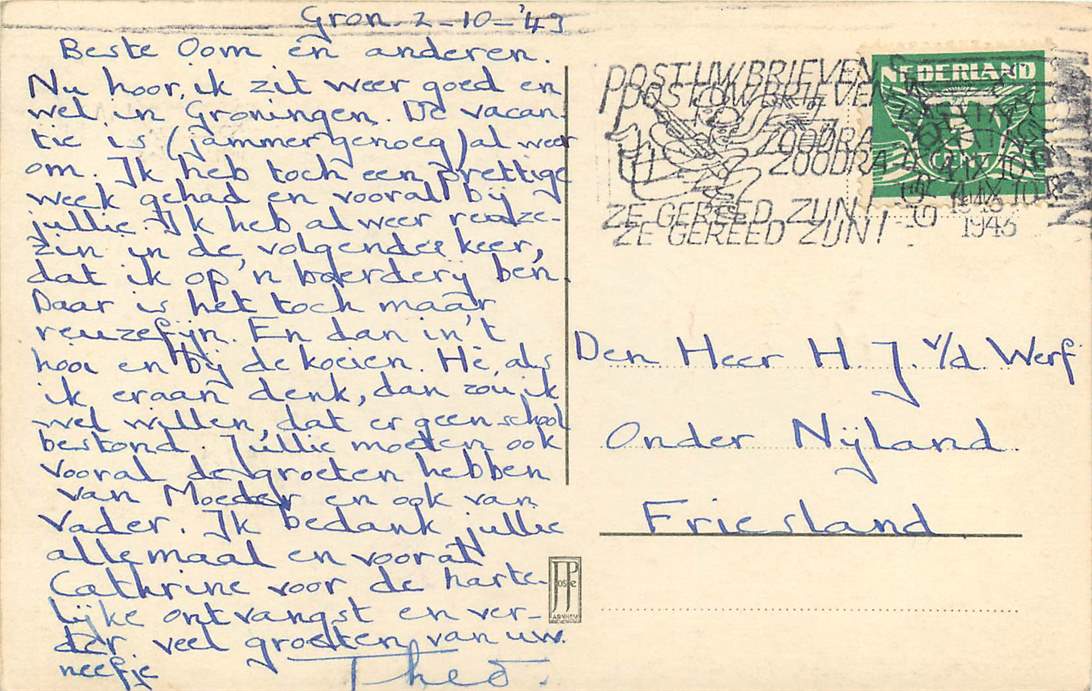 Gron. 2-10-'43
Beste Oom en anderen.
Nu hoor, ik zit weer goed en
wel in Groningen. De vacan-
tie is (jammergenoeg) al weer
om. Ik heb toch een prettige
week gehad en vooral bij
jullie. Ik heb alweer reuze-
zin in de volgende keer,
dat ik op 'n boerderij ben.
Daar is het toch maar
reuzefijn. En dan in 't
hooi en bij de koeien. Hè, als
ik eraan denk, dan zou ik
wel willen, dat er geen school
bestond. Jullie moeten ook
vooral de groeten hebben
van Moeder en ook van
Vader. Ik bedank jullie
allemaal en vooral
Cathrine voor de harte-
lijke ontvangst en ver-
der veel groeten van uw
neefje
Theo.
POST UW BRIEVEN
POST UW BRIEVEN
ZOODRA
ZOODRA
ZE GEREED ZIJN!
ZE GEREED ZIJN!
NEDERLAND
5
CENT
4 IX 10
1943
Den Heer H. J. v/d Werf
Onder Nijland
Friesland
JosPe
ARNHEM